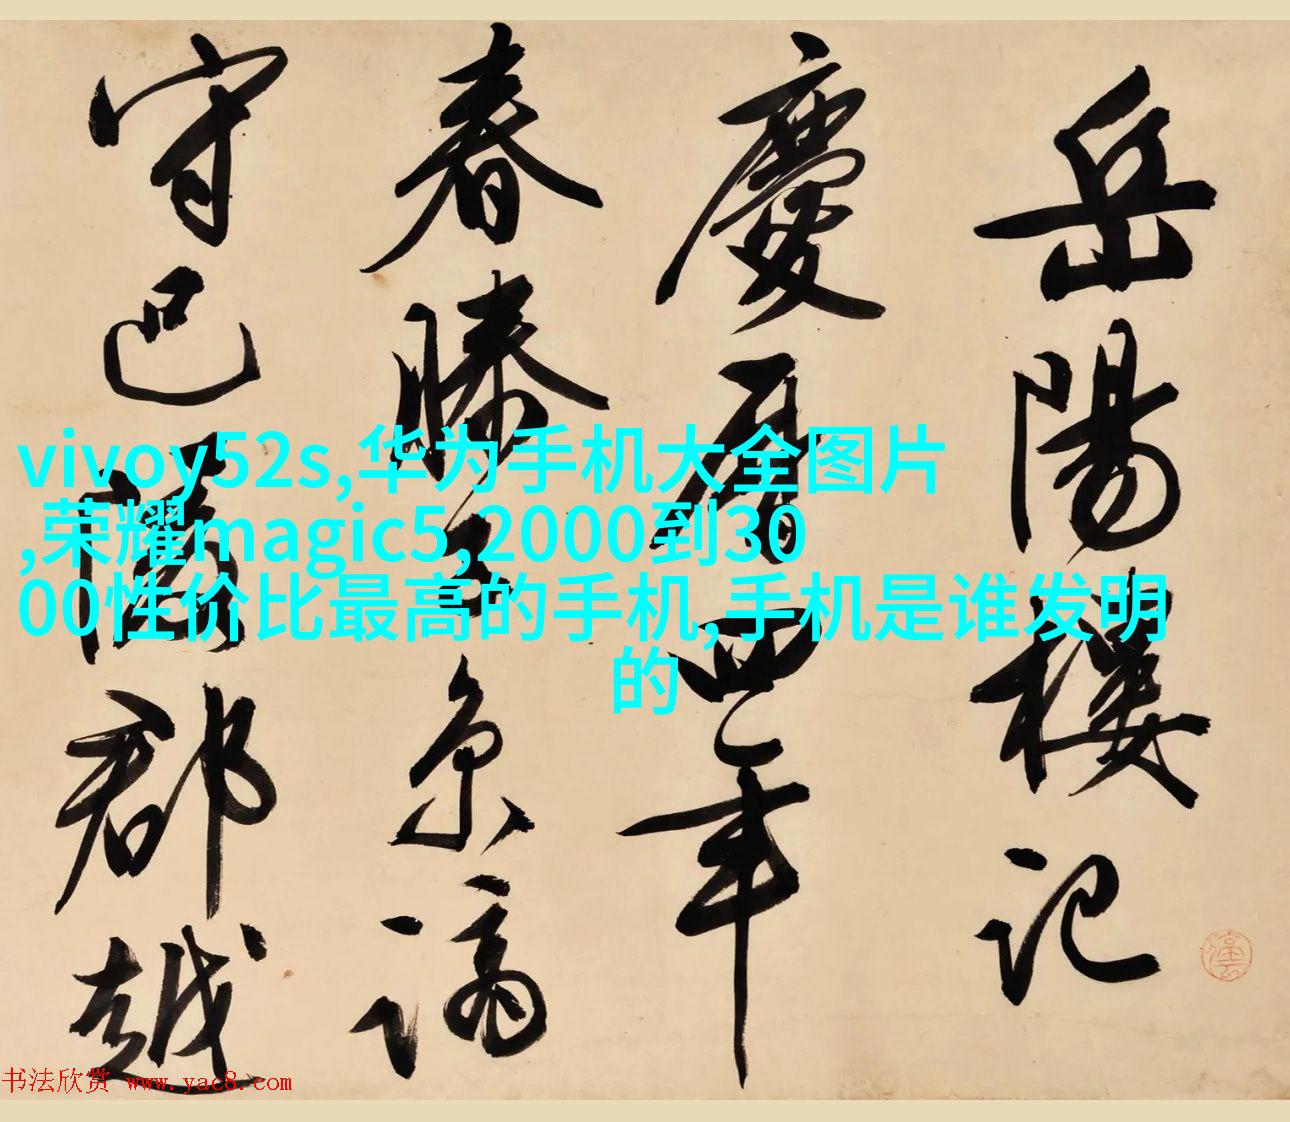 岳陽樓記
慶曆四年
春滕子京謫
守巴陵郡越
vivoy52s,华为手机大全图片
,荣耀magic5,2000到30
00性价比最高的手机,手机是谁发明
的
书法欣赏 www.yac8.com